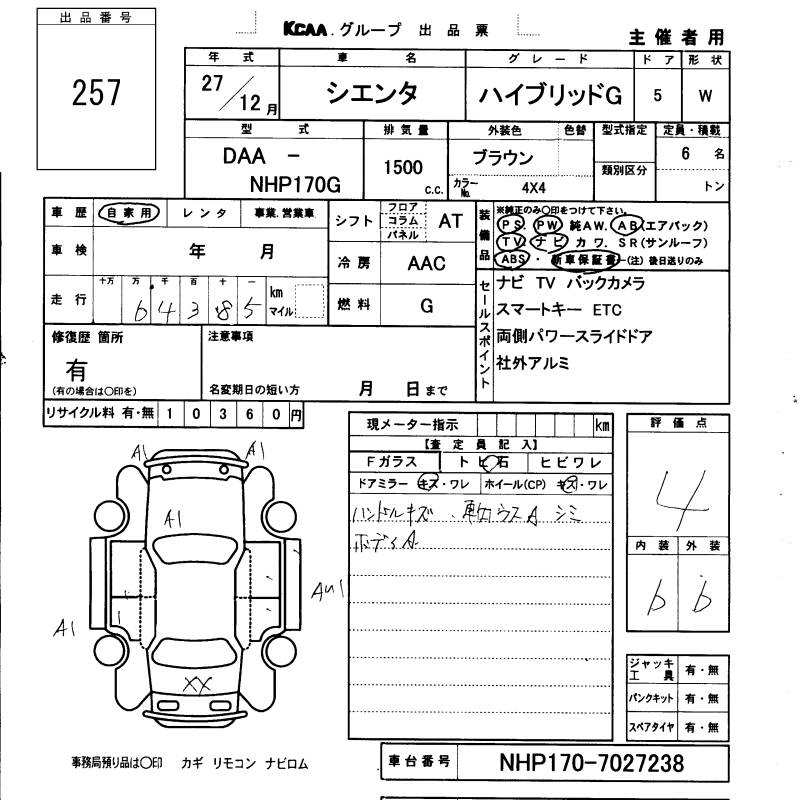 出品番号
257
KCAA.グループ 出品票
主催者用
年式 車名 グレード ドア 形状
27/12月 シエンタ ハイブリッドG 5 W
型式 排気量 外装色 色替 型式指定 定員・積載
DAA - NHP170G
1500 c.c.
ブラウン
カラーNo. 4X4
類別区分
6 名
トン
車歴 自家用 レンタ 事業.営業車
車検 年 月
走行 十万 万 千 百 十 一
64385 km マイル
シフト フロア コラム パネル AT
冷房 AAC
燃料 G
装備品
※純正のみ○印をつけて下さい。
PS. PW 純AW. AB(エアバック)
TV. ナビ カワ. SR(サンルーフ)
ABS・ 新車保証書-(注) 後日送りのみ
セールスポイント
ナビ TV バックカメラ
スマートキー ETC
両側パワースライドドア
社外アルミ
修復歴 箇所
有
(有の場合は○印を)
注意事項
名変期日の短い方 月 日まで
リサイクル料 有・無 10360円
現メーター指示 km
【査定員記入】
Fガラス トビ石 ヒビワレ
ドアミラー キズ・ワレ ホイール(CP) キズ・ワレ
ハンドルキズ. 車内ウスA シミ
ボディA
評価点
4
内装 外装
b b
A1 A1
A1
AU1
A1
XX
ジャッキ工具 有・無
パンクキット 有・無
スペアタイヤ 有・無
事務局預り品は○印 カギ リモコン ナビロム
車台番号 NHP170-7027238